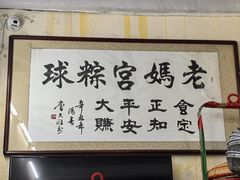 老媽宮粽球
食定
正知
平安
大賺
辛丑年